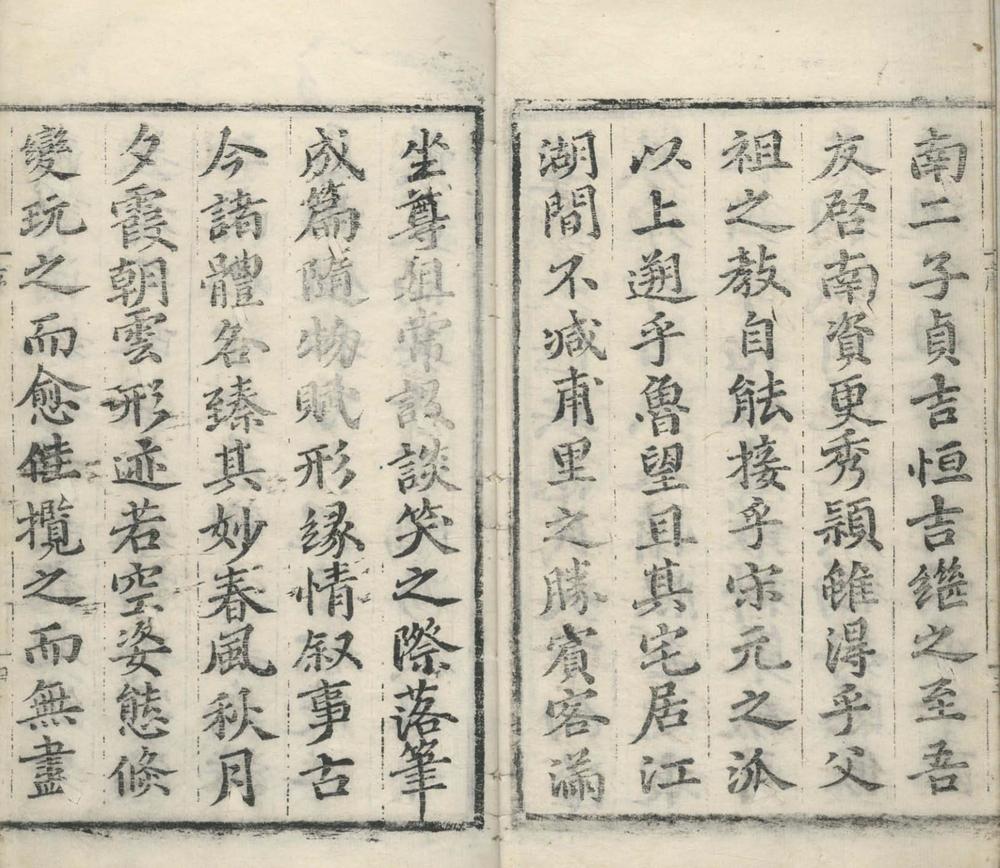 南二子貞吉恒吉繼之至吾
友啓南資更秀穎雖淂乎父
祖之教自能接乎宋元之派
以上遡乎魯望且其宅居江
湖間不减甫里之勝賓客滿
坐尊俎常設談笑之際落筆
成篇隨物賦形緣情叙事古
今諸體各臻其妙春風秋月
夕霞朝雲形迹若空姿態倐
變玩之而愈佳攬之而無盡